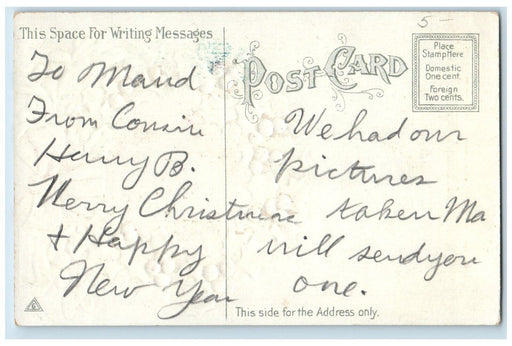 5-
This Space For Writing Messages
POST CARD
Place
Stamp Here
Domestic
One cent.
Foreign
Two cents.
To Maud
From Cousin
Henry B.
Merry Christmas
+ Happy
New Year
We had our
pictures
taken Ma
will send you
one.
This side for the Address only.